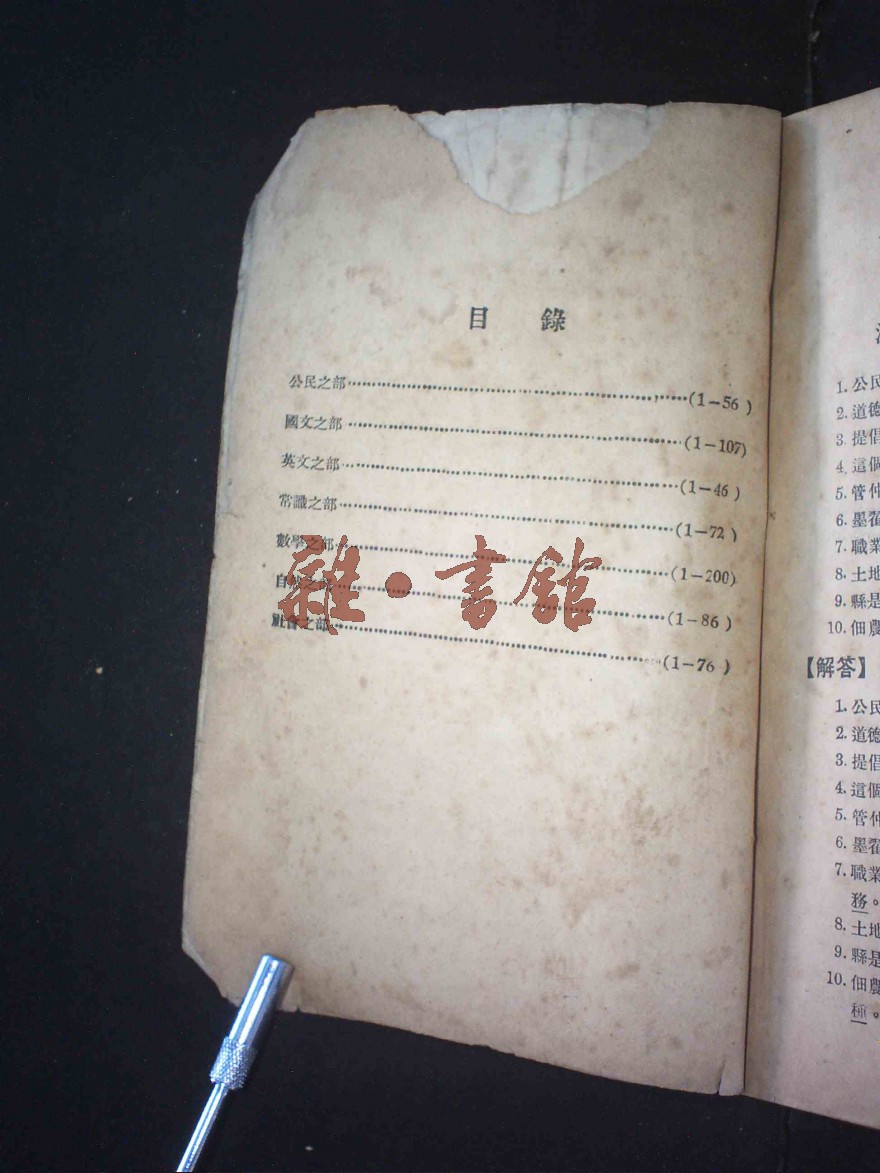 目 錄
公民之部……(1-56)
國文之部……(1-107)
英文之部……(1-46)
常識之部……(1-72)
數學之部……(1-200)
自然之部……(1-86)
社會之部……(1-76)
雜·書館
1. 公民
2. 道德
3. 提倡
4. 這個
5. 管仲
6. 墨翟
7. 職業
8. 土地
9. 縣是
10. 佃農
【解答】
1. 公民
2. 道德
3. 提倡
4. 這個
5. 管仲
6. 墨翟
7. 職業
務。
8. 土地
9. 縣是
10. 佃農
種。